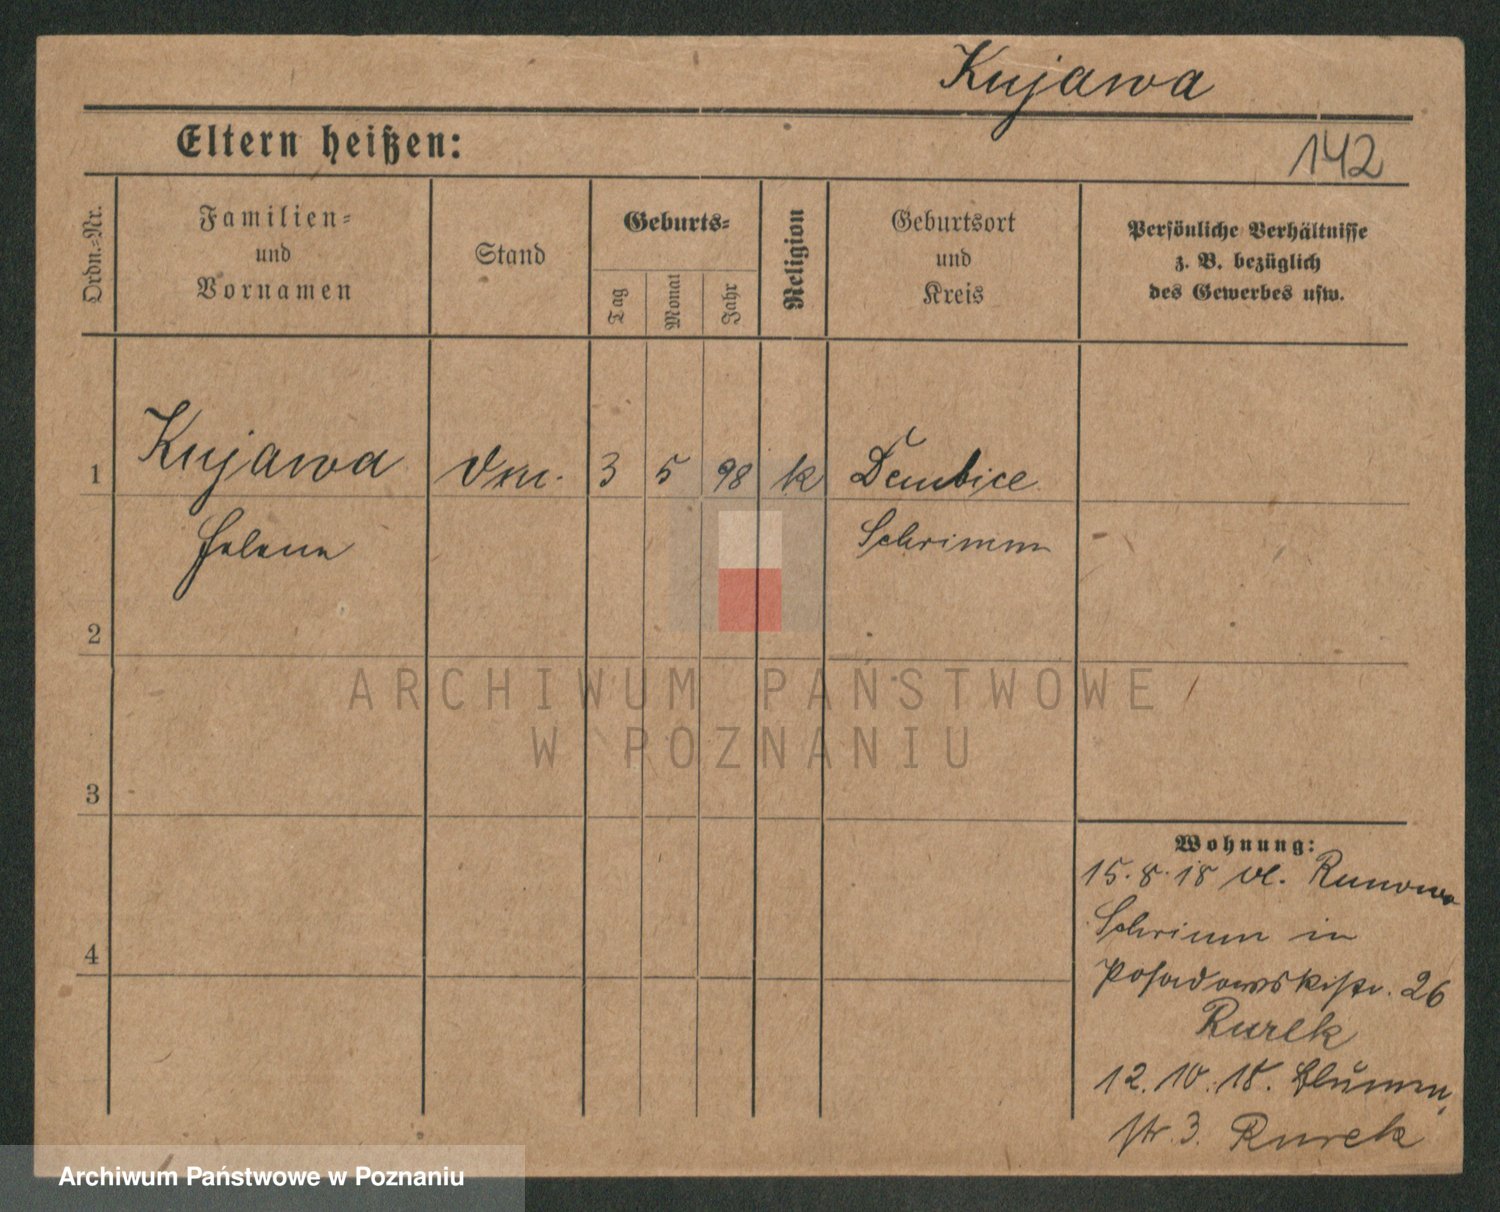 Kujawa
Eltern heißen:
142
Ordn.=Nr.
Familien=
und
Vornamen
Stand
Geburts=
Tag
Monat
Jahr
Religion
Geburtsort
und
Kreis
Persönliche Verhältnisse
z. B. bezüglich
des Gewerbes usw.
1 Kujawa 3 5 98 k Dembice
Helene Schrimm
2
3
4
ARCHIWUM PAŃSTWOWE
W POZNANIU
Wohnung:
15.8.18 Runowo
Schrimm in
Posadowskistr. 26
Rurek
12.10.18. Blumen
str. 3. Rurek
Archiwum Państwowe w Poznaniu